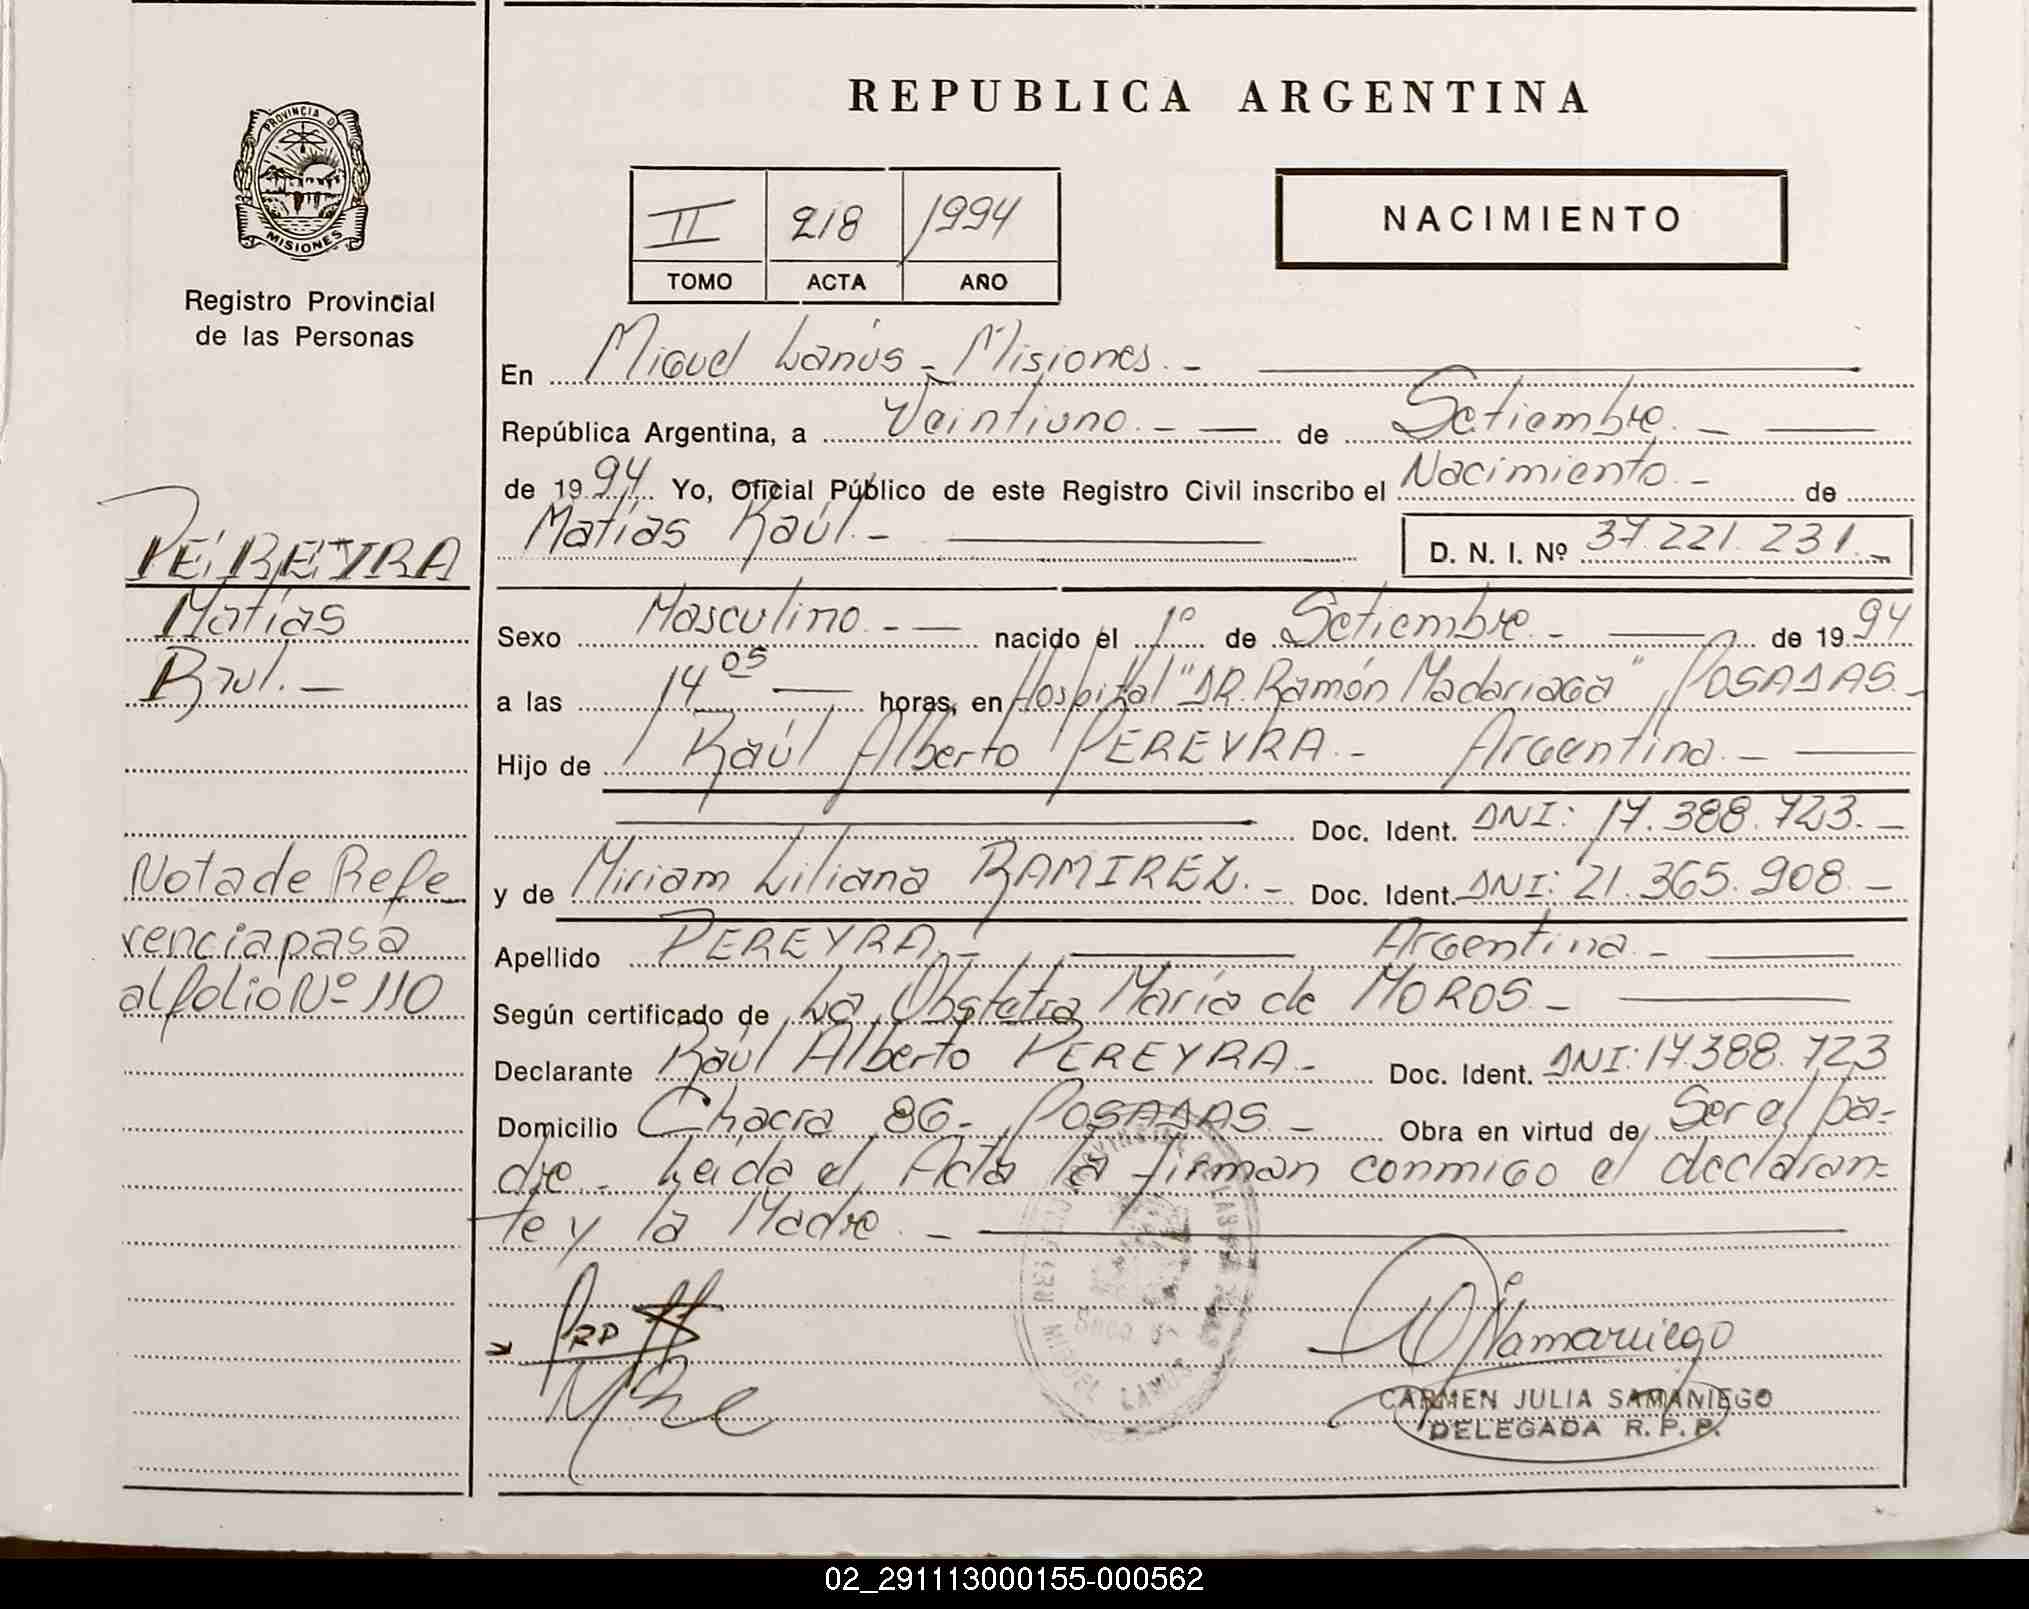 PROVINCIA D
MISIONES
Registro Provincial
de las Personas
PEREYRA
Matías
Raul. —
Nota de Refe-
rencia pasa
al folio Nº 110
REPUBLICA ARGENTINA
II 218 1994
TOMO ACTA AÑO
NACIMIENTO
En Miguel Lanús - Misiones. -
República Argentina, a Veintiuno. - — de Setiembre. - —
de 1994 Yo, Oficial Público de este Registro Civil inscribo el Nacimiento. - de
Matías Raúl. - —
D. N. I. Nº 37.221.231. -
Sexo Masculino - — nacido el 1º de Setiembre. - — de 1994
a las 14 05 — horas, en Hospital "DR. Ramón Madariaga" POSADAS. -
Hijo de Raúl Alberto PEREYRA. - Argentina. - —
Doc. Ident. DNI: 17.388.723. -
y de Miriam Liliana RAMIREZ. - Doc. Ident. DNI: 21.365.908. -
Apellido PEREYRA. - — Argentina. - —
Según certificado de La Obstetra María de MOROS. - —
Declarante Raúl Alberto PEREYRA. - Doc. Ident. DNI: 17.388.723
Domicilio Chacra 86 - POSADAS - Obra en virtud de Ser el pa-
dre - Leída el Acta la firman conmigo el declaran-
te y la Madre. - —
MIGUEL LANUS
CARMEN JULIA SAMANIEGO
DELEGADA R. P. P.
02_291113000155-000562